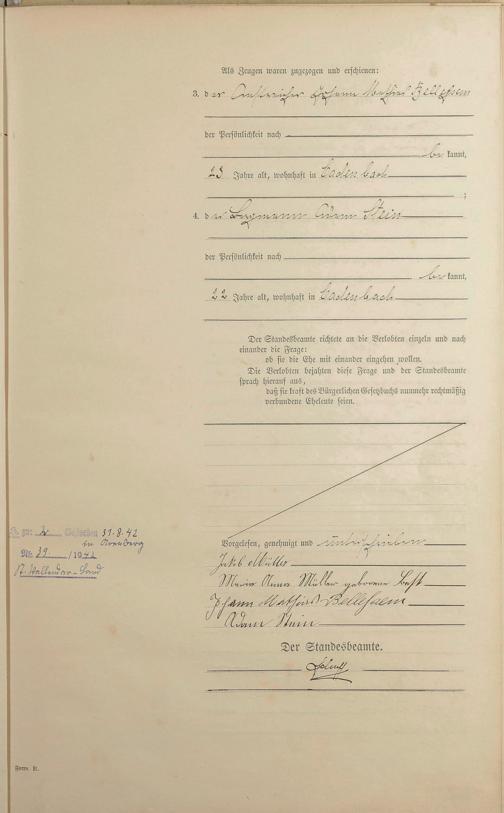 Als Zeugen waren zugezogen und erschienen:
3. der Anstreicher Johann Mathias Bellersheim
der Persönlichkeit nach
be kannt,
23 Jahre alt, wohnhaft in Cadenbach
;
4. der Bergmann Adam Stein
der Persönlichkeit nach
be kannt,
22 Jahre alt, wohnhaft in Cadenbach
Der Standesbeamte richtete an die Verlobten einzeln und nach
einander die Frage:
ob sie die Ehe mit einander eingehen wollen.
Die Verlobten bejahten diese Frage und der Standesbeamte
sprach hierauf aus,
daß sie kraft des Bürgerlichen Gesetzbuchs nunmehr rechtmäßig
verbundene Eheleute seien.
zu: 2 Gestorben 31.8.42
in Arenberg
Nr. 39 /1942
St. Vallendar-Land
Vorgelesen, genehmigt und unterschrieben
Jakob Müller
Maria Anna Müller geborene
Johann Mathias Bellersheim
Adam Stein
Der Standesbeamte.
Form. B.